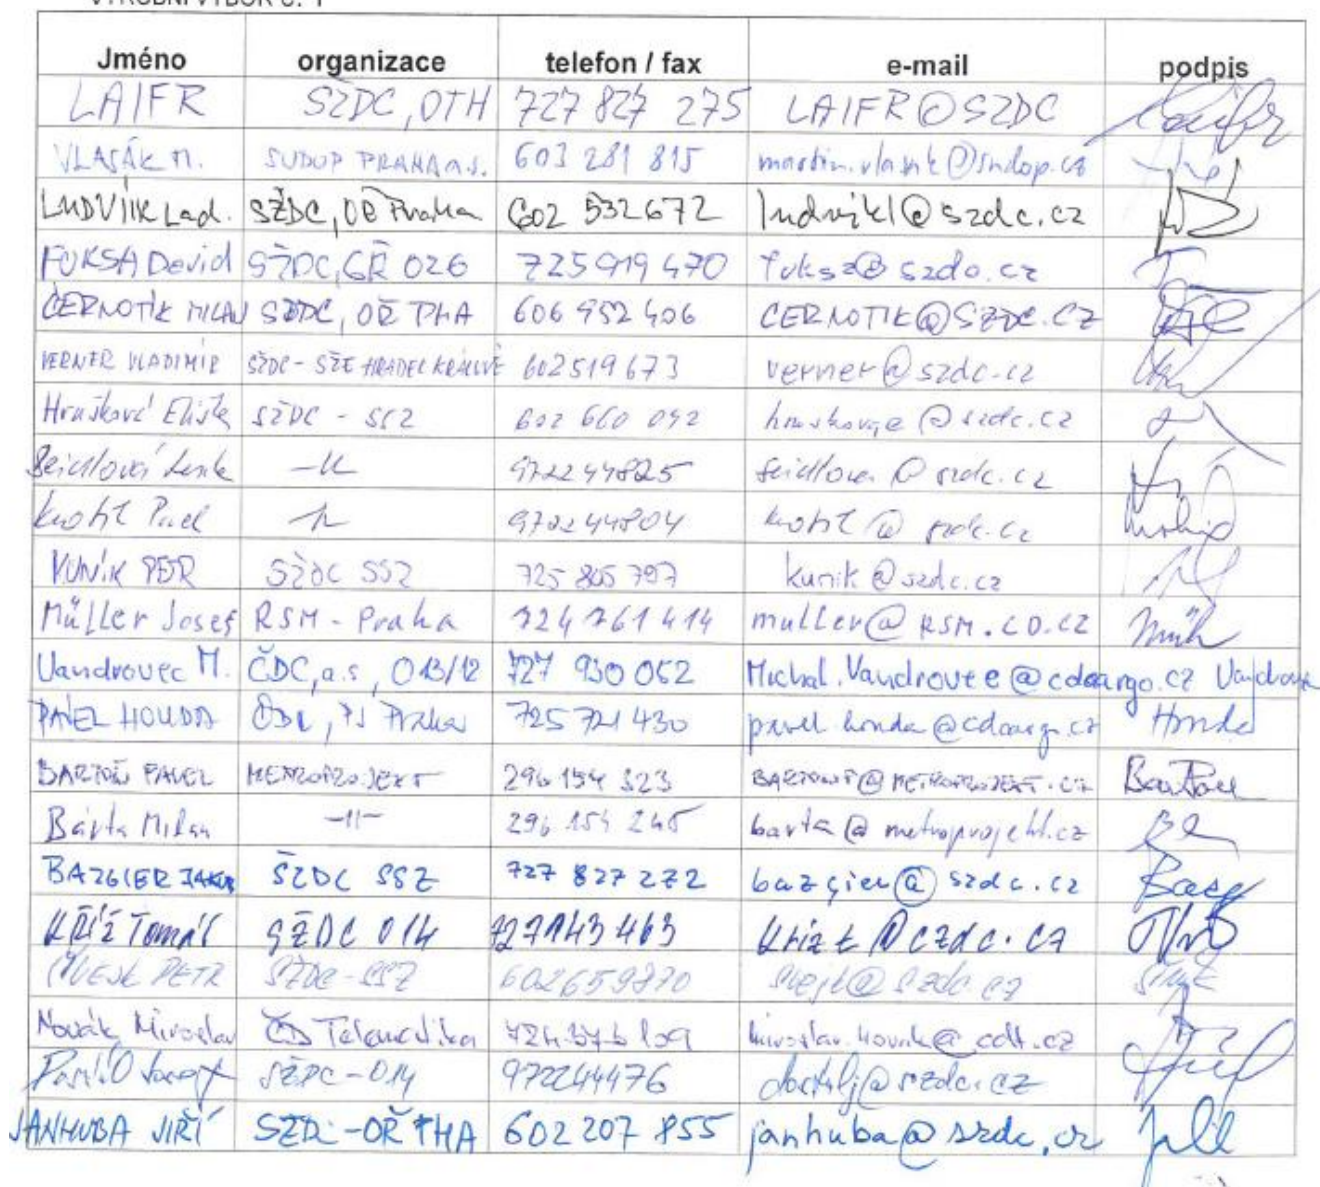 VÝROBNÍ VÝBOR č. 1
Jméno organizace telefon / fax e-mail podpis
LAIFR SŽDC, OTH 727 827 275 LAIFR@SZDC
VLASÁK M. SUDOP PRAHA a.s. 603 281 815 martin.vlasak@sudop.cz
LUDVÍK Lad. SŽDC, OŘ Praha 602 532 672 ludvikl@szdc.cz
FUKSA David SŽDC, GŘ O26 725 919 470 fuksa@szdc.cz
ČERNOTÍK MILAN SŽDC, OŘ PHA 606 952 406 CERNOTIK@SZDC.CZ
VERNER VLADIMÍR SŽDC - SŽE HRADEC KRÁLOVÉ 602519673 verner@szdc.cz
Hrušková Eliška SŽDC - SSZ 602 660 092 hruskovae@szdc.cz
Seidlová Lenka -"- 972244825 seidlova@szdc.cz
Pavel -"- 972244804 @szdc.cz
KUNÍK PETR SŽDC SSZ 725 805 797 kunik@szdc.cz
Müller Josef RSM - Praha 724 761 414 muller@RSM.CO.CZ
Vandrovec M. ČDC, a.s, O13/12 727 930 052 Michal.Vandrovec@cdcargo.cz Vandrovec
PAVEL HOUDA ČDC, PJ Praha 725 721 430 pavel.houda@cdcargo.cz Houda
BARTOŇ PAVEL METROPROJEKT 296 154 323 BARTONP@METROPROJEKT.CZ
Bárta Milan -"- 296 154 245 barta@metroprojekt.cz
BAZGIER JAKUB SŽDC SSZ 727 827 272 bazgier@szdc.cz
KŘÍŽ Tomáš SŽDC O14 727143 463 krizt@czdc.cz
PETR SŽDC - SSZ 602659870 @szdc.cz
Novák Miroslav ČD Telematika miroslav.novak@cdt.cz
SŽDC - O14 972244476 dostalj@szdc.cz
JANHUBA JIŘÍ SŽDC - OŘ PHA 602 207 855 janhuba@szdc.cz